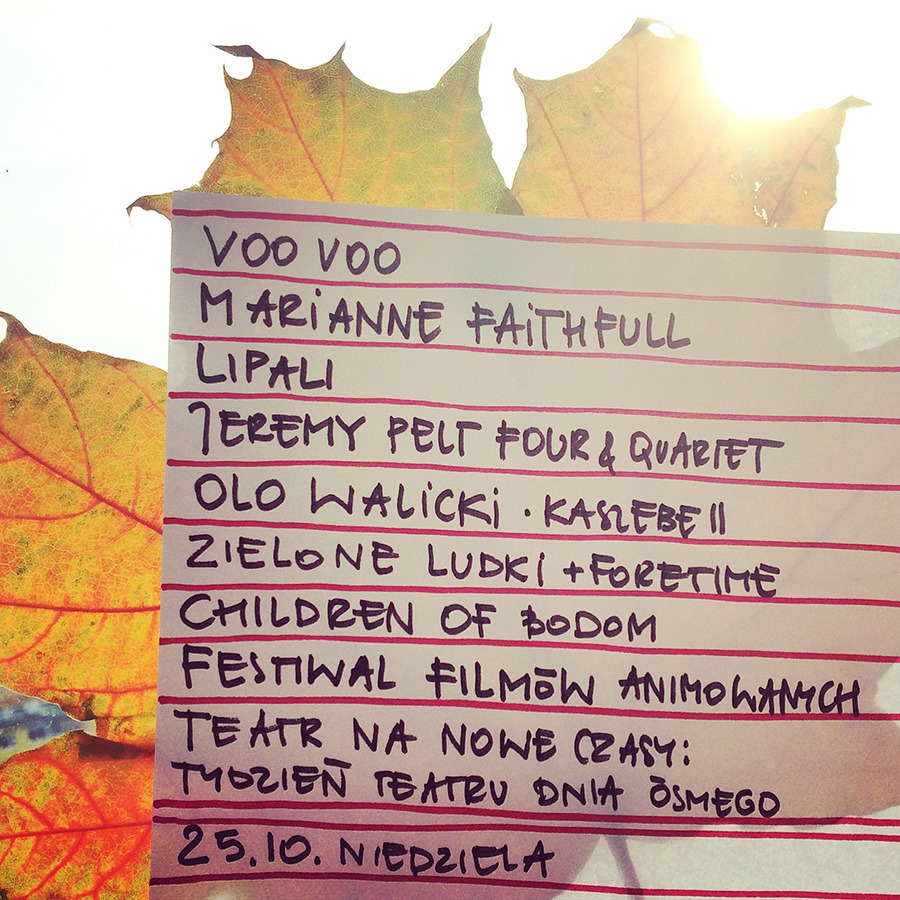 VOO VOO
MARiANNE FAiTHFULL
LIPALI
JEREMY PELT FOUR & QUARTET
OLO WALiCKi · KASZEBE II
ZIELONE LUDKI + FORETIME
CHILDREN OF BODOM
FESTIWAL FILMÓW ANIMOWANYCH
TEATR NA NOWE CZASY:
TYDZIEŃ TEATRU DNIA ÓSMEGO
25.10. NIEDZIELA